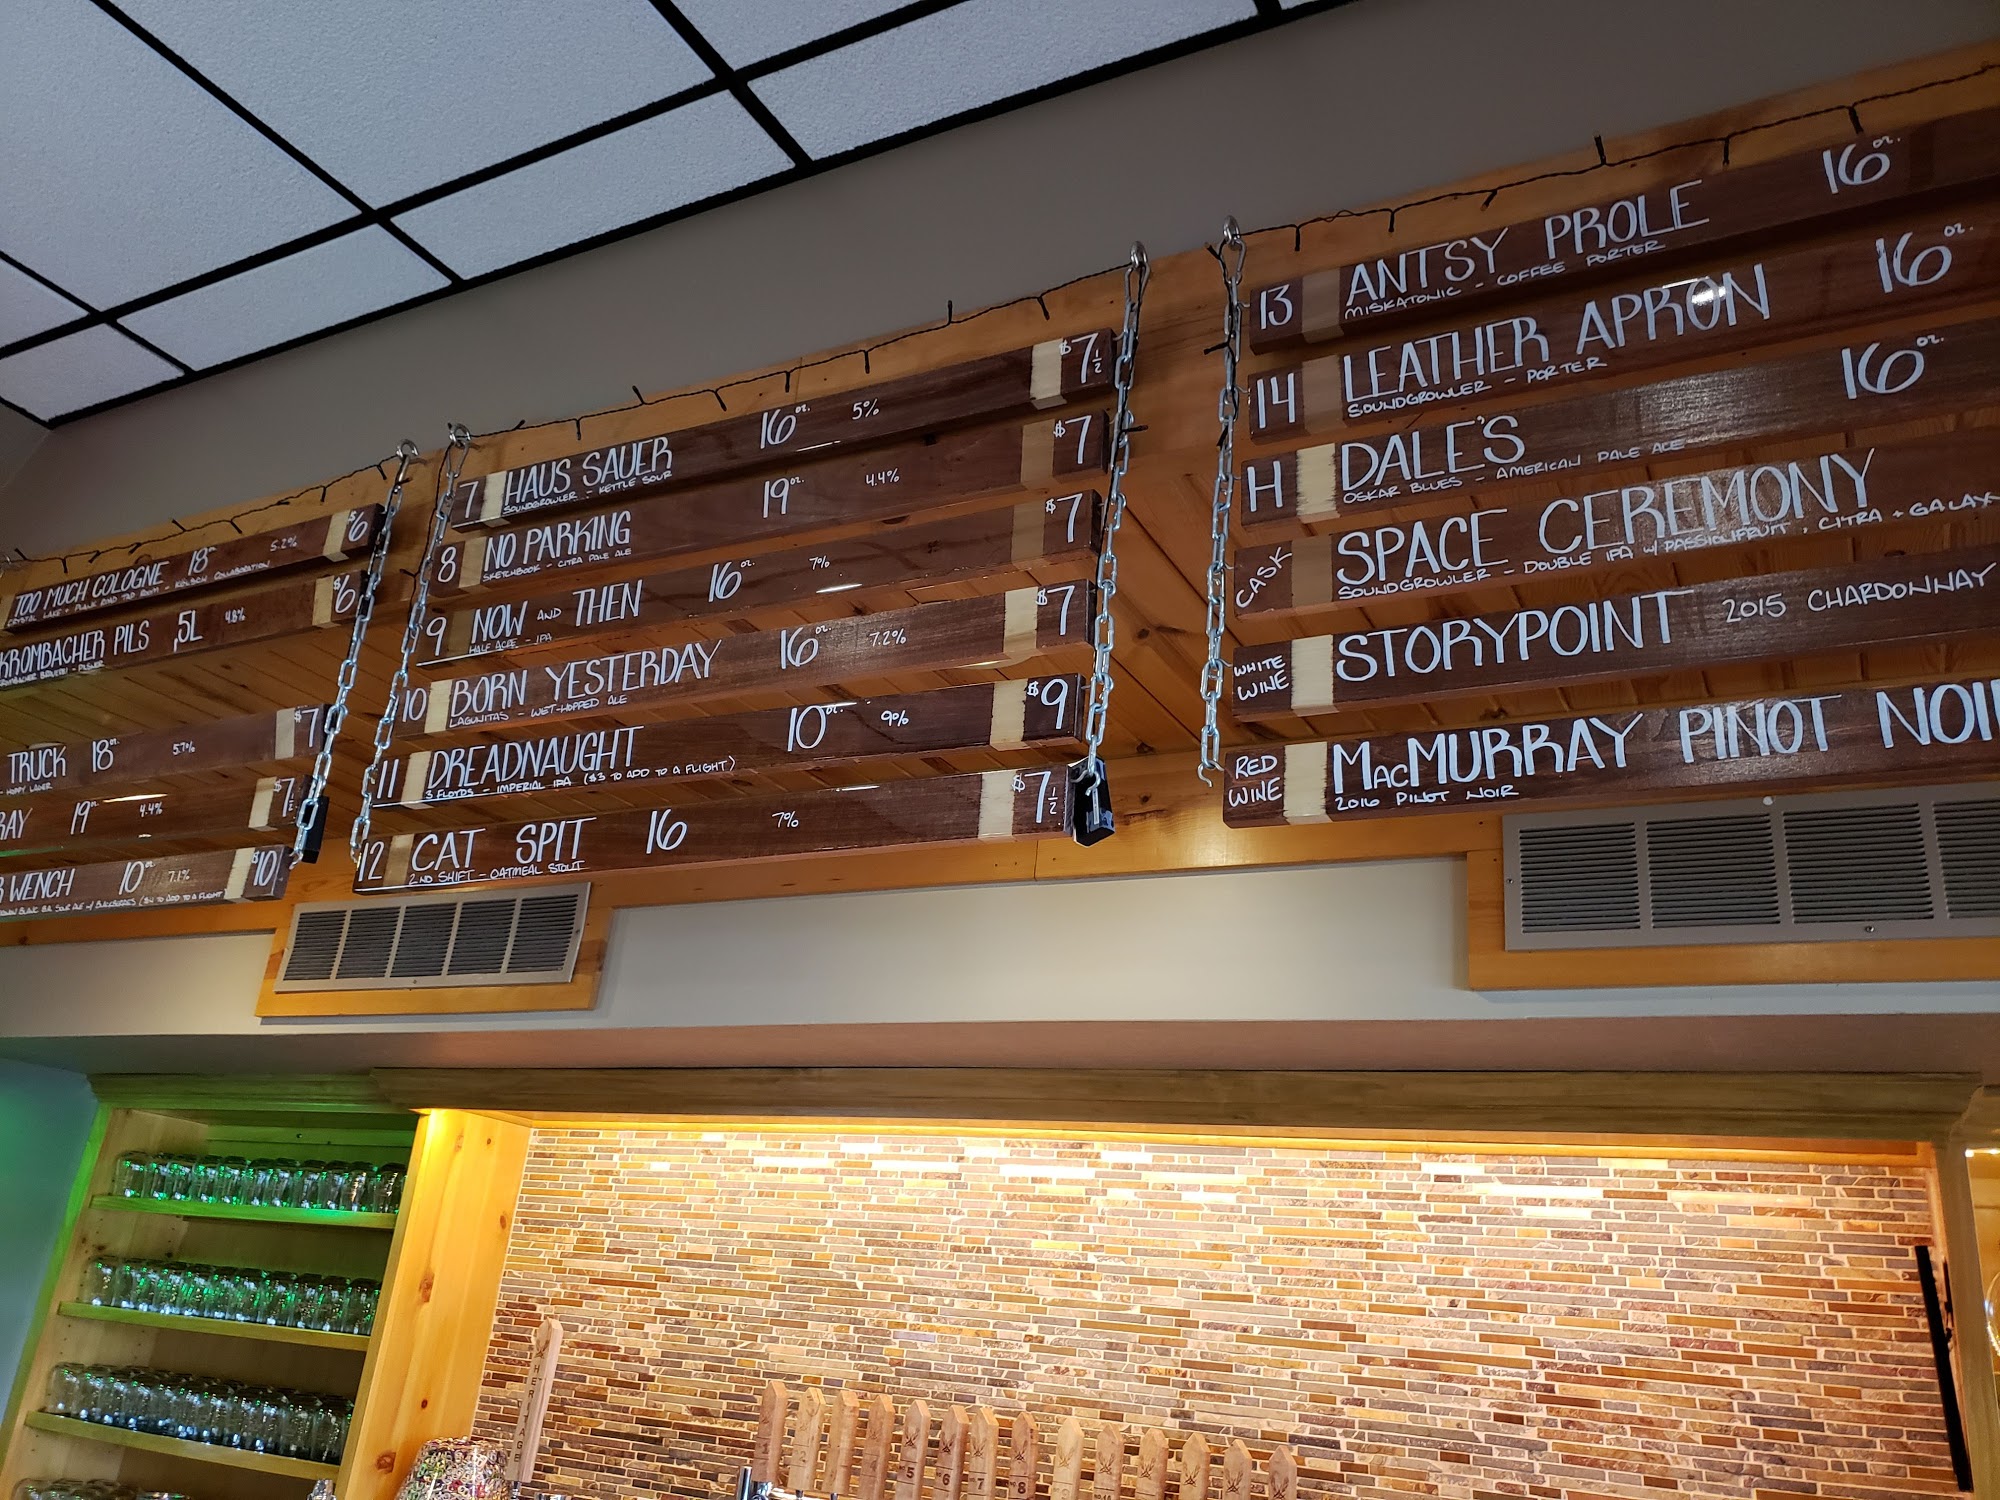 TOO MUCH COLOGNE 18oz. 5.2% $6
CRYSTAL LAKE + PLANK ROAD TAP ROOM - KOLSCH COLLABORATION
KROMBACHER PILS .5L 4.8% $6
KROMBACHER BRAUEREI - PILSNER
TRUCK 18oz. 5.7% $7
- HOPPY LAGER
RAY 19oz. 4.4% $7 1/2
WENCH 10oz. 7.1% $10
BLANC BA SOUR ALE W/ BLACKBERRIES ($4 TO ADD TO A FLIGHT)
7 HAUS SAUER 16oz. 5% $7 1/2
SOUNDGROWLER - KETTLE SOUR
8 NO PARKING 19oz. 4.4% $7
SKETCHBOOK - CITRA PALE ALE
9 NOW AND THEN 16oz. 7% $7
HALF ACRE - IPA
10 BORN YESTERDAY 16oz. 7.2% $7
LAGUNITAS - WET-HOPPED ALE
11 DREADNAUGHT 10oz. 9% $9
3 FLOYDS - IMPERIAL IPA ($3 TO ADD TO A FLIGHT)
12 CAT SPIT 16 7% $7 1/2
2ND SHIFT - OATMEAL STOUT
13 ANTSY PROLE 16oz.
MISKATONIC - COFFEE PORTER
14 LEATHER APRON 16oz.
SOUNDGROWLER - PORTER
H DALE'S 16oz.
OSKAR BLUES - AMERICAN PALE ALE
CASK SPACE CEREMONY
SOUNDGROWLER - DOUBLE IPA W/ PASSIONFRUIT, CITRA + GALAXY
WHITE WINE STORYPOINT 2015 CHARDONNAY
RED WINE MACMURRAY PINOT NOIR
2016 PINOT NOIR
HERITAGE
5
6
7
8